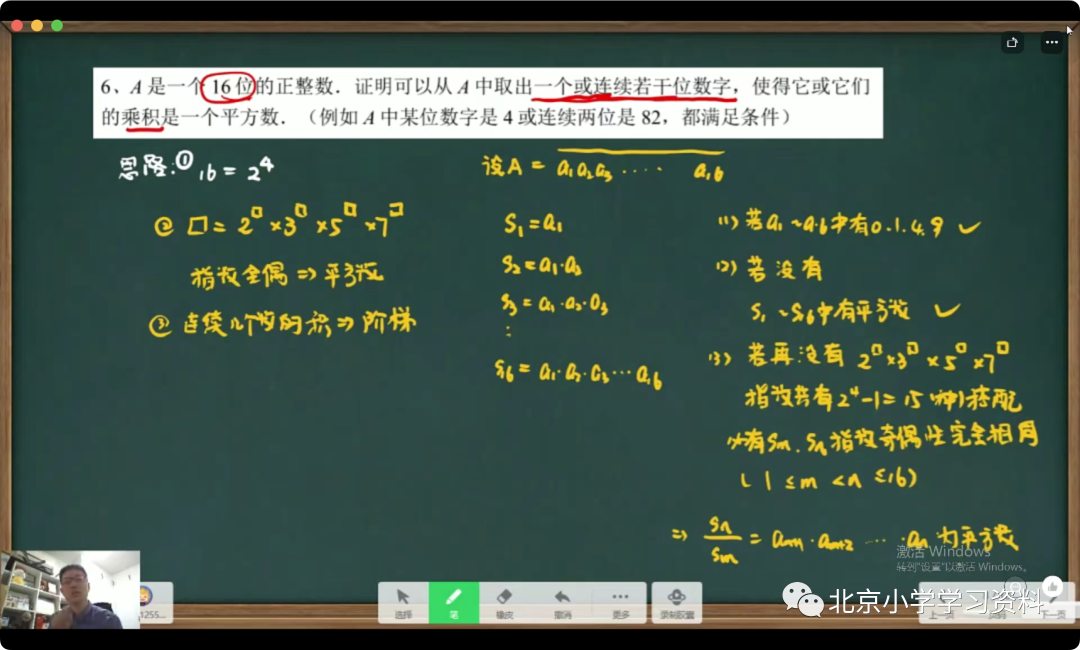 6、A 是一个 16 位的正整数．证明可以从 A 中取出一个或连续若干位数字，使得它或它们
的乘积是一个平方数．（例如 A 中某位数字是 4 或连续两位是 82，都满足条件）
思路:① 16 = 2^4
② □ = 2^□ ×3^□ ×5^□ ×7^□
指数全偶 ⇒ 平方数
③ 连续几个数的积 ⇒ 阶梯
设A = a₁a₂a₃ ···· a₁₆
S₁ = a₁
S₂ = a₁·a₂
S₃ = a₁·a₂·a₃
:
S₁₆ = a₁·a₂·a₃···a₁₆
(1) 若a₁~a₁₆中有0.1.4.9 ✓
(2) 若没有
S₁~S₁₆中有平方数 ✓
(3) 若再没有 2^□ ×3^□ ×5^□ ×7^□
指数共有 2^4 -1 = 15 (种)搭配
必有 Sm、Sn 指数奇偶性完全相同
( 1 ≤ m < n ≤ 16)
⇒ Sn/Sm = am+1 · am+2 ··· · an 为平方数
激活 Windows
转到"设置"以激活 Windows。
1255...
选择
笔
橡皮
撤消
更多
北京小学学习资料
上一页
下一页